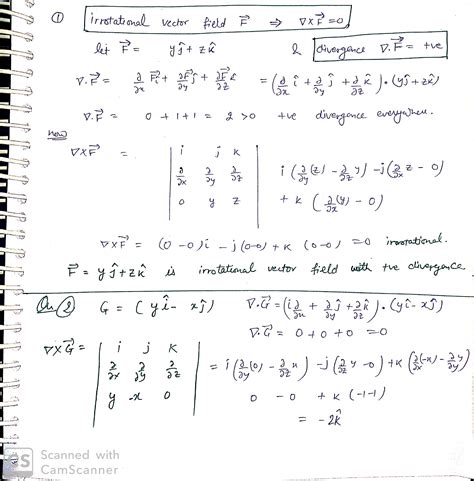 ① irrotational vector field F⃗ ⇒ ∇×F⃗ = 0
let F⃗ = yĵ + zk̂ & divergence ∇.F⃗ = +ve
∇.F⃗ = ∂/∂x F⃗i + ∂F⃗/∂y ĵ + ∂F⃗/∂z k̂ = (∂/∂x î + ∂/∂y ĵ + ∂/∂z k̂).(yĵ + zk̂)
∇.F⃗ = 0 + 1 + 1 = 2 > 0 +ve divergence everywhere.
now
∇×F⃗ = | i j k |
| ∂/∂x ∂/∂y ∂/∂z | i (∂/∂y(z) - ∂/∂z y) - j(∂/∂x z - 0)
| 0 y z | + k (∂/∂x(y) - 0)
∇×F⃗ = (0-0)i - j(0-0) + k (0-0) = 0 irrotational.
F⃗ = yĵ + zk̂ is irrotational vector field with +ve divergence.
Qu ② G = (yî - xĵ) ∇.G⃗ = (î ∂/∂x + ∂/∂y ĵ + ∂/∂z k̂).(yî - xĵ)
∇.G⃗ = 0 + 0 + 0 = 0
∇×G⃗ = | i j k |
| ∂/∂x ∂/∂y ∂/∂z | = i(∂/∂y(0) - ∂/∂z x) - j(∂/∂z y - 0) + k(∂/∂x(-x) - ∂/∂y y)
| y -x 0 | 0 - 0 + k (-1-1)
= -2k̂
CS Scanned with
CamScanner